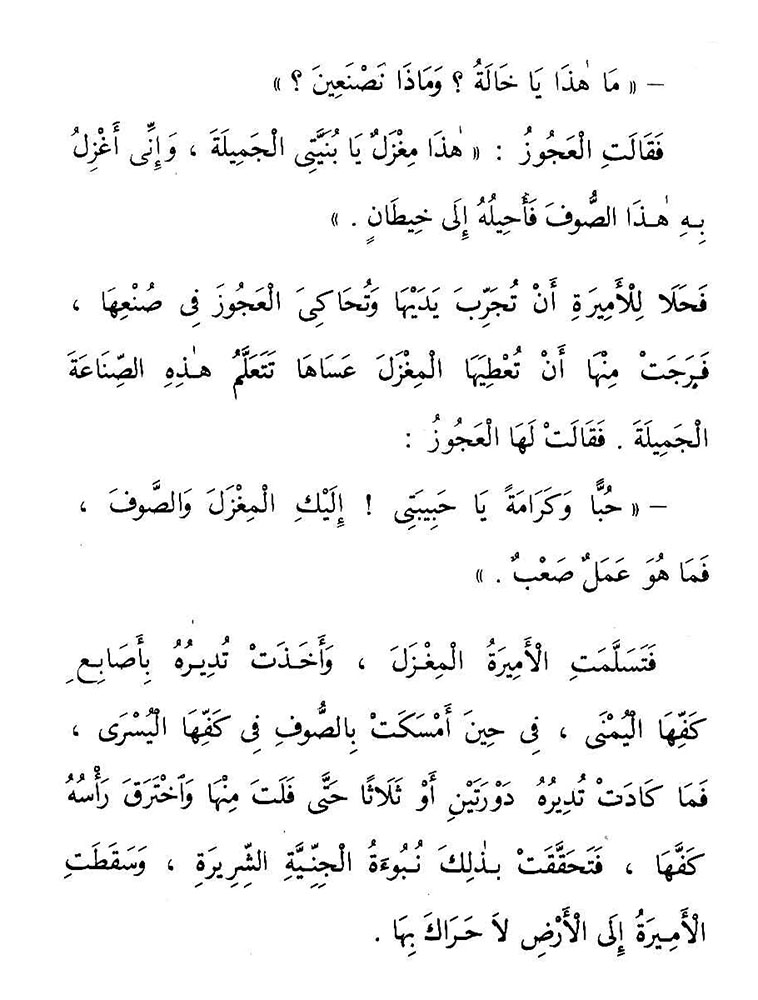 – « مَا هٰذَا يَا خَالَةُ ؟ وَمَاذَا تَصْنَعِينَ ؟ »
فَقَالَتِ الْعَجُوزُ : « هٰذَا مِغْزَلٌ يَا بُنَيَّتِى الْجَمِيلَةَ ، وَإِنِّى أَغْزِلُ
بِهِ هٰذَا الصُّوفَ فَأُحِيلُهُ إِلَى خِيطَانٍ . »
فَحَلَا لِلْأَمِيرَةِ أَنْ تُجَرِّبَ يَدَيْهَا وَتُحَاكِىَ الْعَجُوزَ فِى صُنْعِهَا ،
فَرَجَتْ مِنْهَا أَنْ تُعْطِيَهَا الْمِغْزَلَ عَسَاهَا تَتَعَلَّمُ هٰذِهِ الصِّنَاعَةَ
الْجَمِيلَةَ . فَقَالَتْ لَهَا الْعَجُوزُ :
– « حُبًّا وَكَرَامَةً يَا حَبِيبَتِى ! إِلَيْكِ الْمِغْزَلَ وَالصَّوفَ ،
فَمَا هُوَ عَمَلٌ صَعْبٌ . »
فَتَسَلَّمَتِ الْأَمِيرَةُ الْمِغْزَلَ ، وَأَخَذَتْ تُدِيرُهُ بِأَصَابِعِ
كَفِّهَا الْيُمْنَى ، فِى حِينَ أَمْسَكَتْ بِالصُّوفِ فِى كَفِّهَا الْيُسْرَى ،
فَمَا كَادَتْ تُدِيرُهُ دَوْرَتَيْنِ أَوْ ثَلَاثًا حَتَّى فَلَتَ مِنْهَا وَٱخْتَرَقَ رَأْسُهُ
كَفَّهَا ، فَتَحَقَّقَتْ بِذٰلِكَ نُبُوءَةُ الْجِنِّيَّةِ الشِّرِيرَةِ ، وَسَقَطَتِ
الْأَمِيرَةُ إِلَى الْأَرْضِ لاَ حَرَاكَ بِهَا .